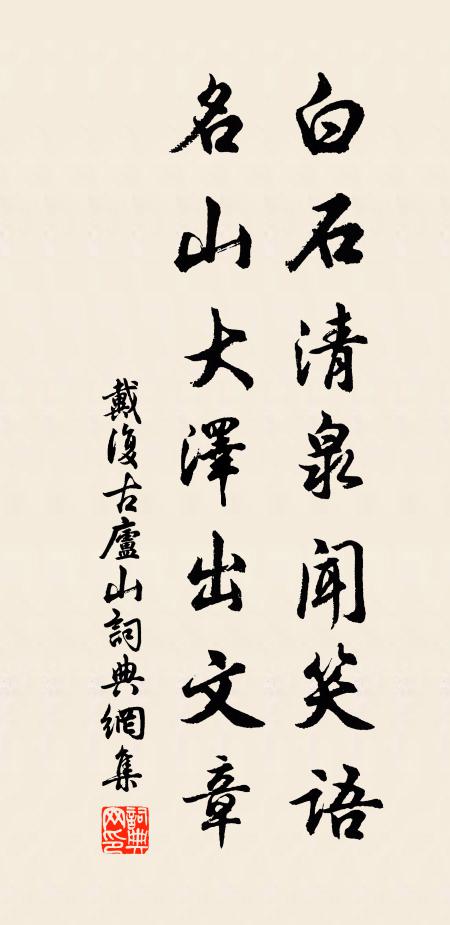 白石清泉聞笑語
名山大澤出文章
戴復古廬山詞典網集
詞典網印